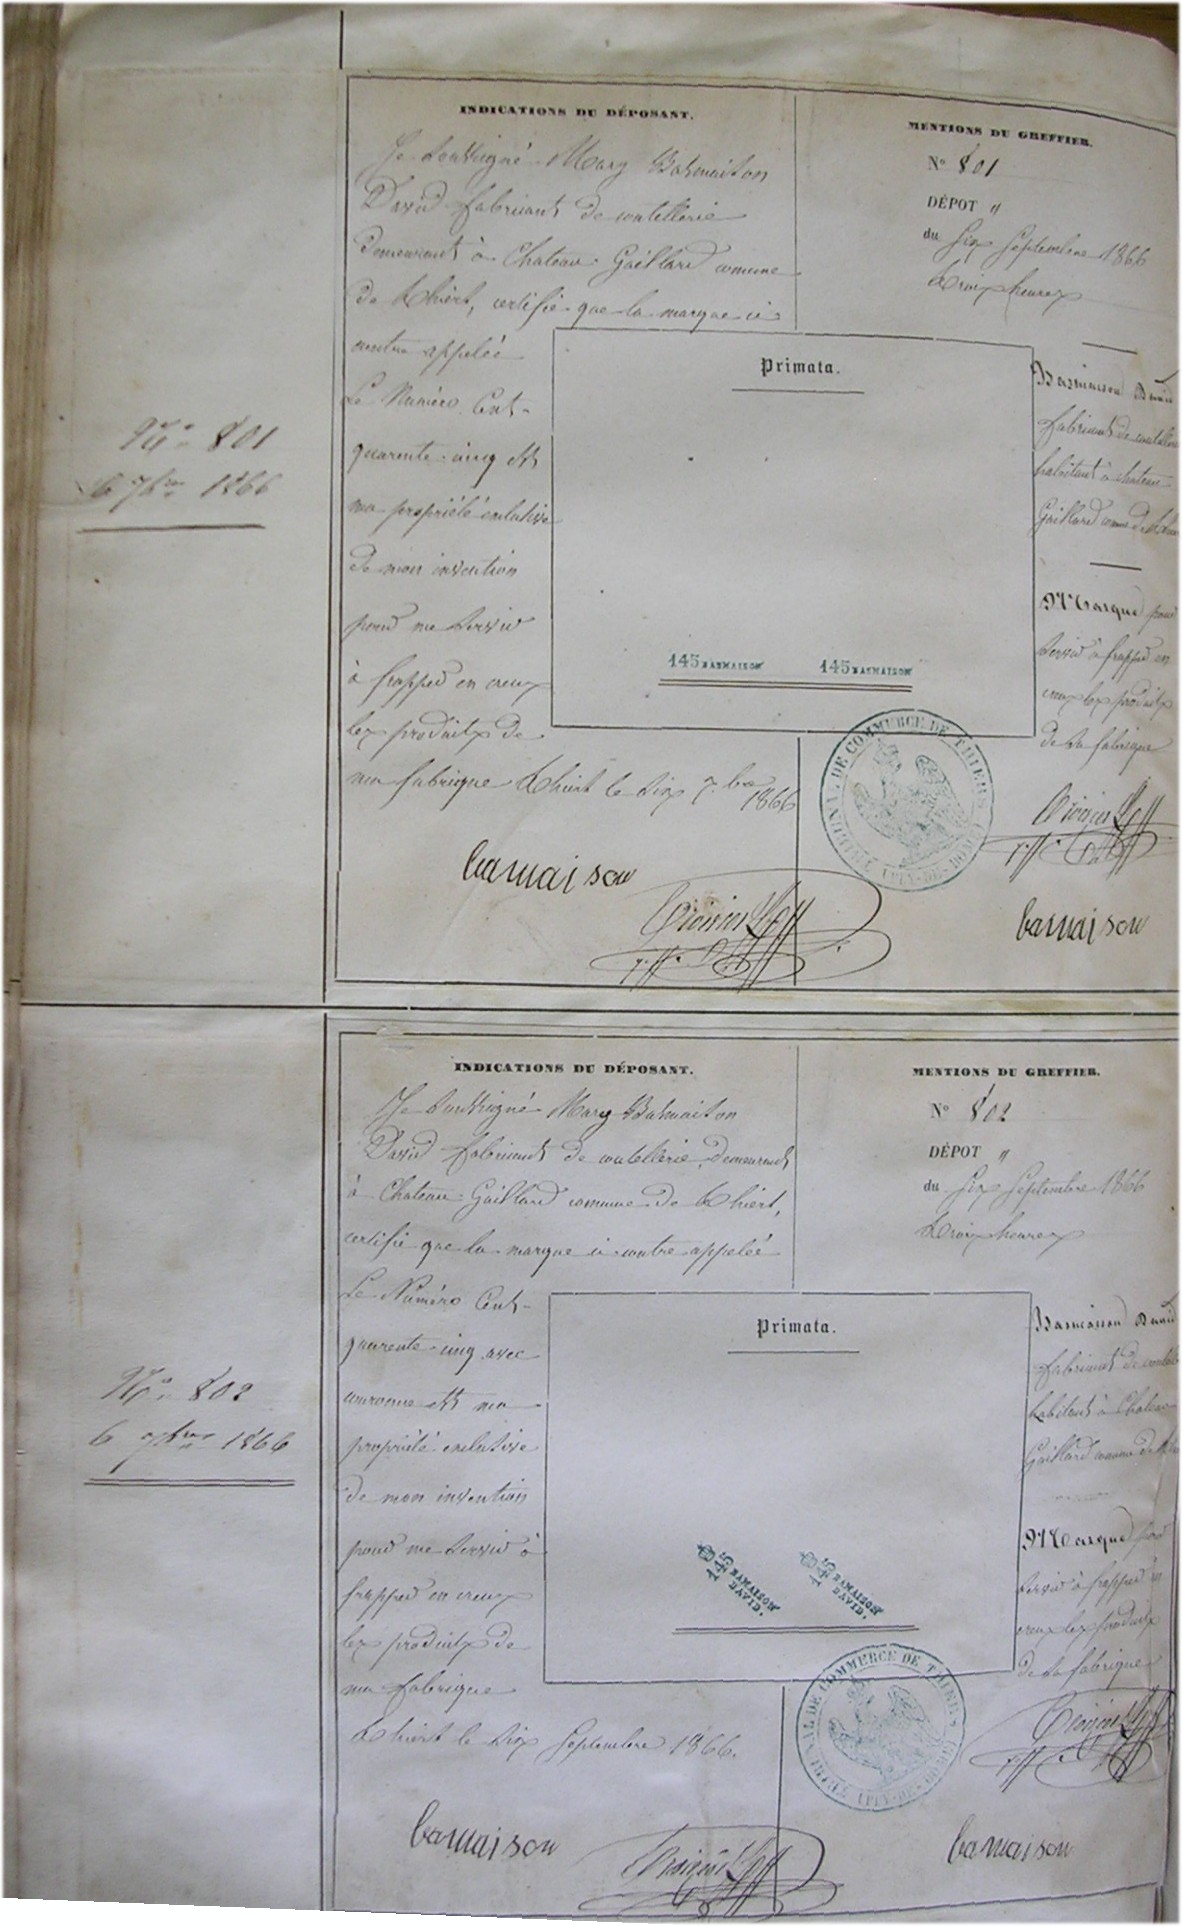 INDICATIONS DU DÉPOSANT.
Je soussigné Mary Basmaison
David fabricant de coutellerie
demeurant à Chateau-Gaillard comune
de Thiers, certifie que la marque ci-
contre appelée
Le Numéro Cent-
quarente-cinq est
ma propriété exclusive
de mon invention
pour me servir
à frapper en creux
les produits de
ma fabrique Thiers le six 7bre
1866
bamaison
MENTIONS DU GREFFIER.
N° 801
DÉPOT "
du Six Septembre 1866
trois heures
Primata.
145 BASMAISON 145 BASMAISON
Basmaison David
fabricant de
habitant à chateau
Gaillard comune de
Marque pour
servir à frapper en
creux les produits
de sa fabrique
TRIBUNAL DE COMMERCE DE THIERS
(PUY-DE-DOME)
bamaison
N° 801
6 7bre 1866
INDICATIONS DU DÉPOSANT.
Je soussigné Mary Basmaison
David fabricant de coutellerie, demeurant
à Chateau-Gaillard commune de Thiers,
certifie que la marque ci-contre appelée
Le Numéro Cent-
quarente-cinq avec
couronne est ma
propriété exclusive
de mon invention
pour me servir à
frapper en creux
les produits de
ma fabrique
Thiers le six Septembre 1866.
bamaison
MENTIONS DU GREFFIER.
N° 802
DÉPOT "
du Six Septembre 1866
trois heures
Primata.
145 BAMAISON DAVID. 145 BAMAISON DAVID.
Basmaison David
fabricant de
habitant à Chateau
Gaillard comune de
Marque pour
servir à frapper en
creux les produits
de sa fabrique
TRIBUNAL DE COMMERCE DE THIERS
(PUY-DE-DOME)
bamaison
N° 802
6 7bre 1866